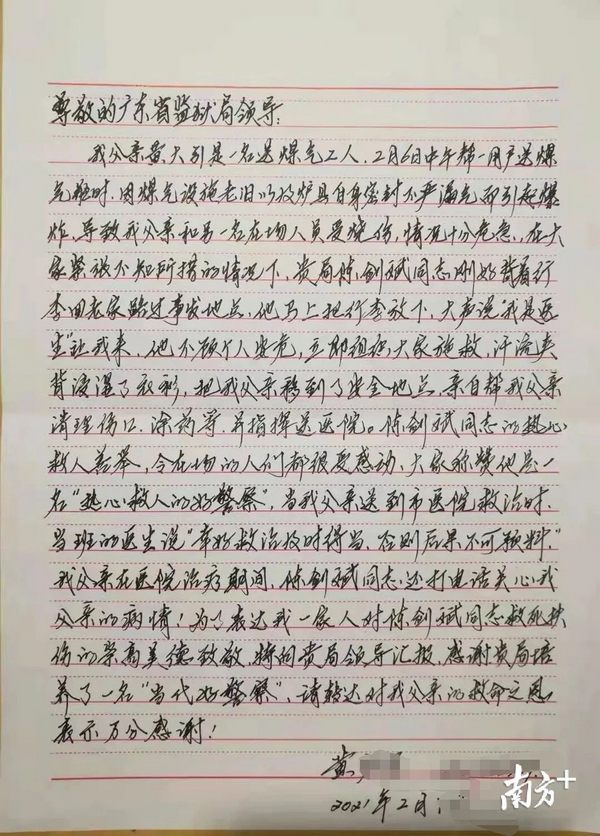 尊敬的广东省监狱局领导:
我父亲黄大引是一名送煤气工人,2月6日中午帮一用户送煤
气瓶时,因煤气设施老旧以及炉具自身密封不严漏气而引起爆
炸,导致我父亲和另一名在场人员受烧伤,情况十分危急,在大
家紧张不知所措的情况下,贵局陈剑斌同志刚好背着行
李回老家路过事发地点,他马上把行李放下,大声说"我是医
生"让我来,他不顾个人安危,立即组织大家施救,汗流夹
背浸湿了衣衫,把我父亲移到了安全地点,亲自帮我父亲
清理伤口、涂药等并指挥送医院。陈剑斌同志的热心
救人善举,令在场的人们都很受感动,大家称赞他是一
名"热心救人的好警察",当我父亲送到市医院救治时,
当班的医生说"幸好救治及时得当,否则后果不可预料,"
我父亲在医院治疗期间,陈剑斌同志还打电话关心我
父亲的病情!为了表达我一家人对陈剑斌同志救死扶
伤的崇高美德致敬,特向贵局领导汇报,感谢贵局培
养了一名"当代好警察",请转达对我父亲的救命之恩
表示万分感谢!
黄
2021年2月
南方+